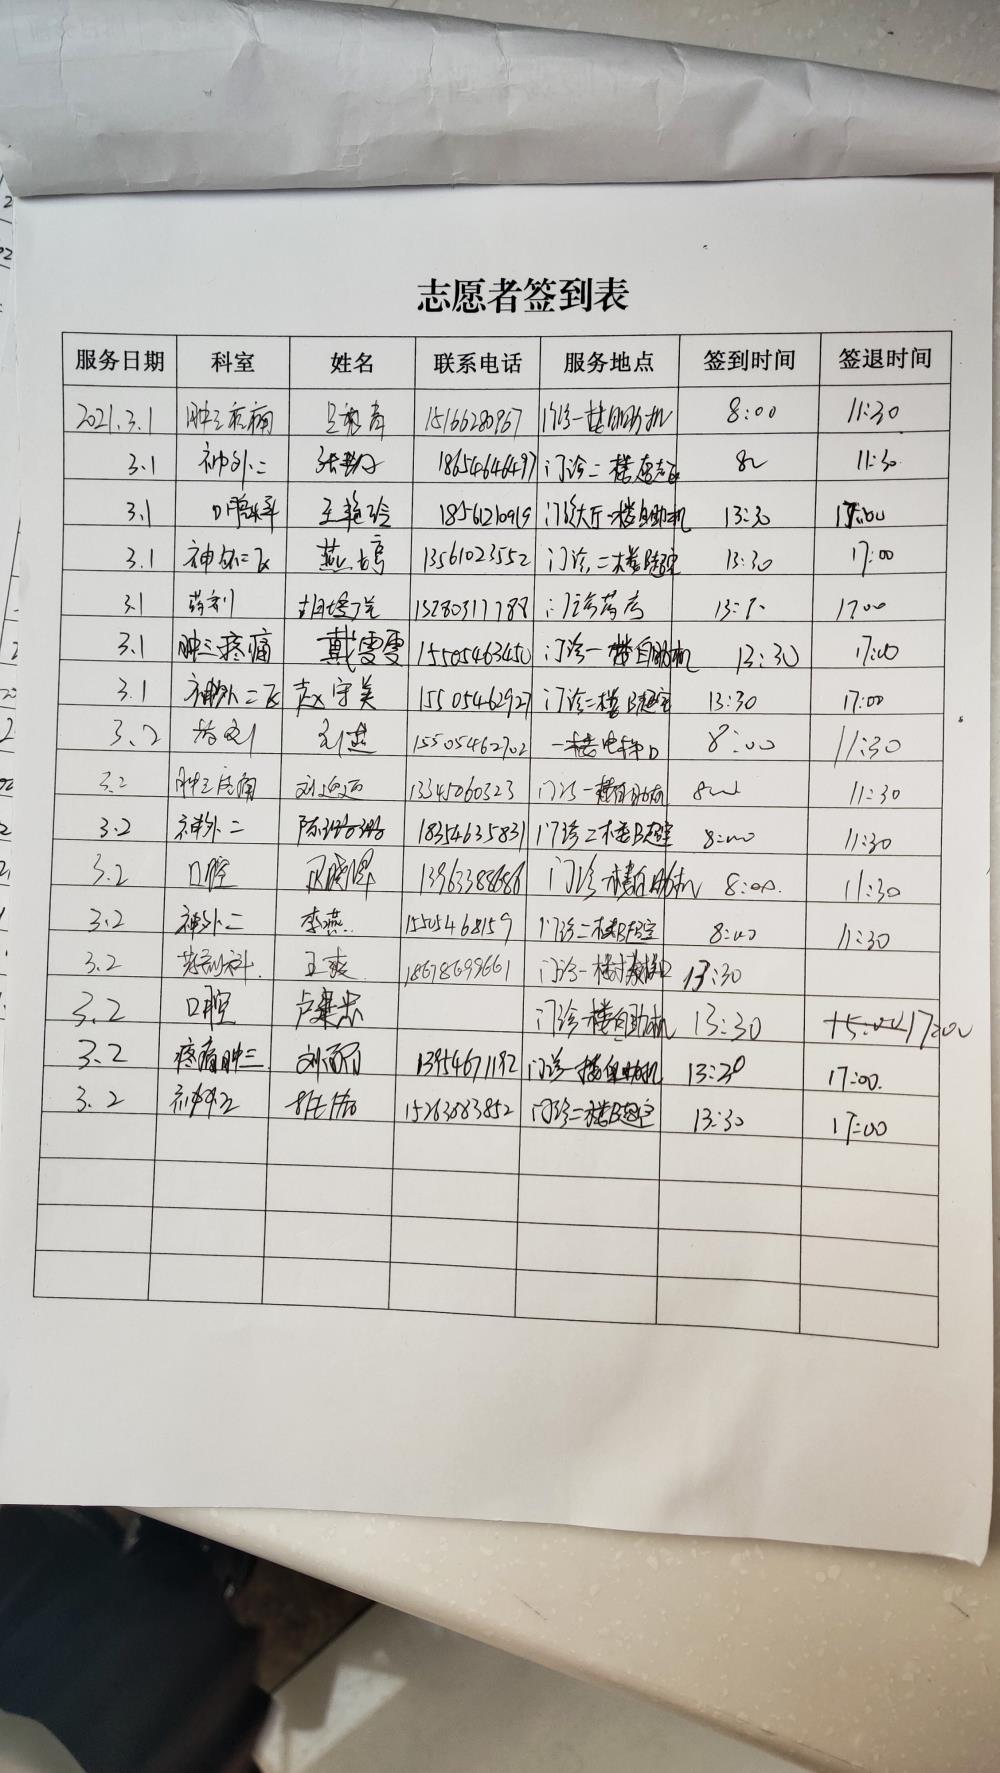 志愿者签到表
服务日期 科室 姓名 联系电话 服务地点 签到时间 签退时间
2021.3.1 肿三疼痛 15166280967 门诊一楼自助机 8:00 11:30
3.1 神外二 18654646497 门诊二楼 11:30
3.1 口腔科 王艳玲 18561210919 门诊大厅一楼自助机 13:30 17:00
3.1 神外二 燕 13561023552 门诊二楼B超室 13:30 17:00
3.1 药剂 15280317788 门诊药房 17:00
3.1 肿三疼痛 戴雪雪 15505463450 门诊一楼自助机 13:30 17:00
3.1 神外二 赵守美 15505462927 门诊二楼B超室 13:30 17:00
3.2 15505462702 一楼电梯口 8:00 11:30
3.2 肿三疼痛 刘 13345060323 门诊一楼自助机 11:30
3.2 神外二 陈珊珊 18354635831 门诊二楼B超室 8:00 11:30
3.2 口腔 13963388686 门诊一楼自助机 8:00. 11:30
3.2 神外二 李燕 15505468159 门诊二楼B超室 8:00 11:30
3.2 药剂科. 王爽 18678699661 门诊一楼 13:30
3.2 口腔 卢建忠 门诊一楼自助机 13:30 15:00 17:00
3.2 疼痛肿三 刘 13954671192 门诊一楼自助机 13:30 17:00.
3.2 15263883852 门诊二楼B超室 13:30 17:00